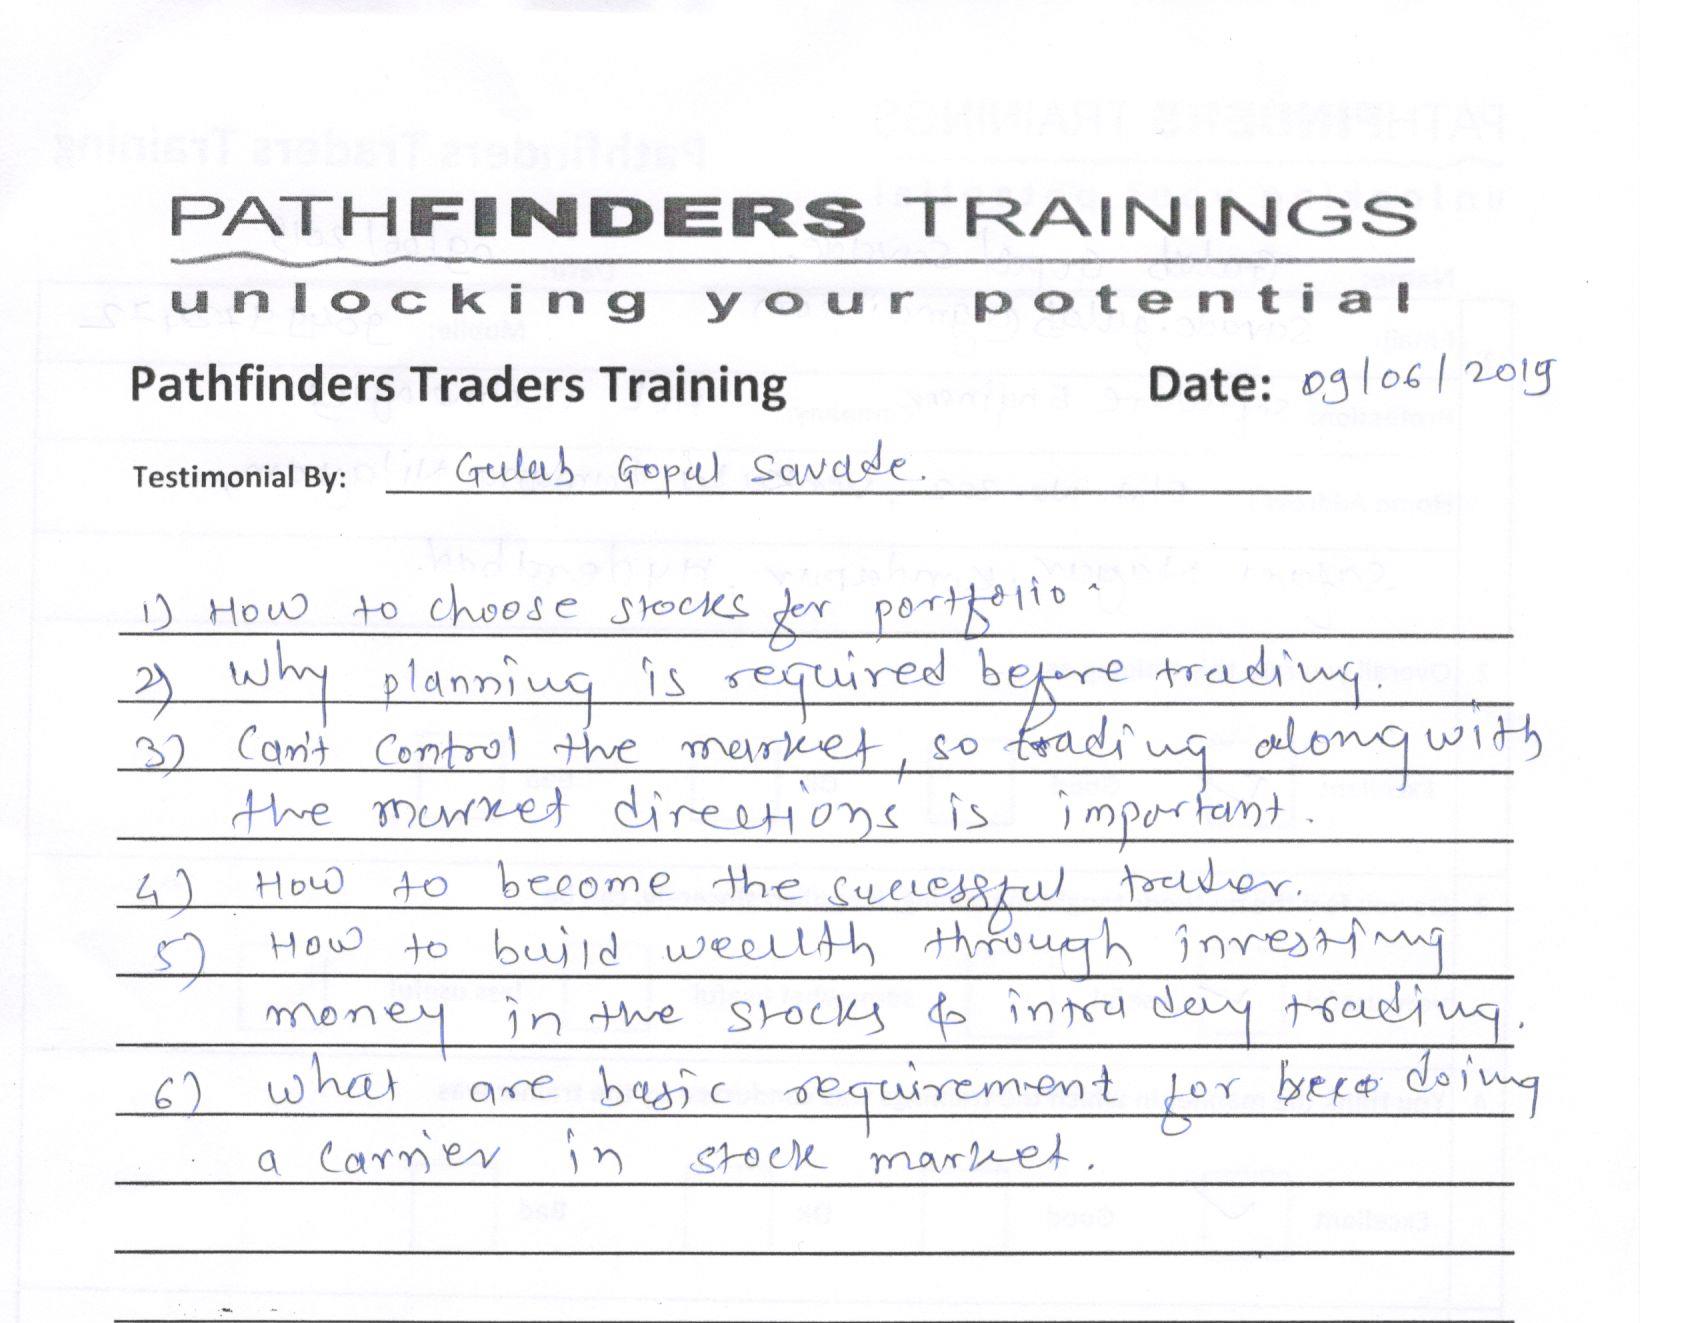 PATHFINDERS TRAININGS
unlocking your potential
Pathfinders Traders Training Date: 09/06/2019
Testimonial By: Gulab Gopal Savade.
1) How to choose stocks for portfolio.
2) Why planning is required before trading.
3) Can't control the market, so trading along with
the market directions is important.
4) How to become the successful trader.
5) How to build weelth through investing
money in the stocks & intra day trading.
6) What are basic requirement for doing
a carrier in stock market.